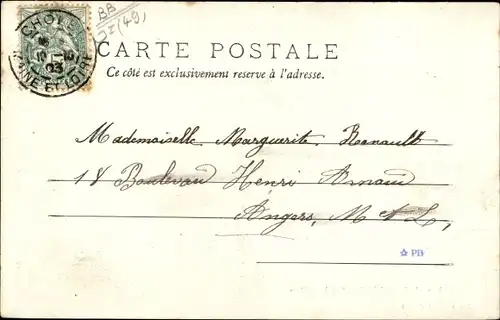 BB
CHOLET
03
MAINE ET LOIRE
CARTE POSTALE
Ce côté est exclusivement reserve à l'adresse.
Mademoiselle Marguerite Renault
18 Boulevard Henri Arnaud
Angers, M & L,
☆ PB